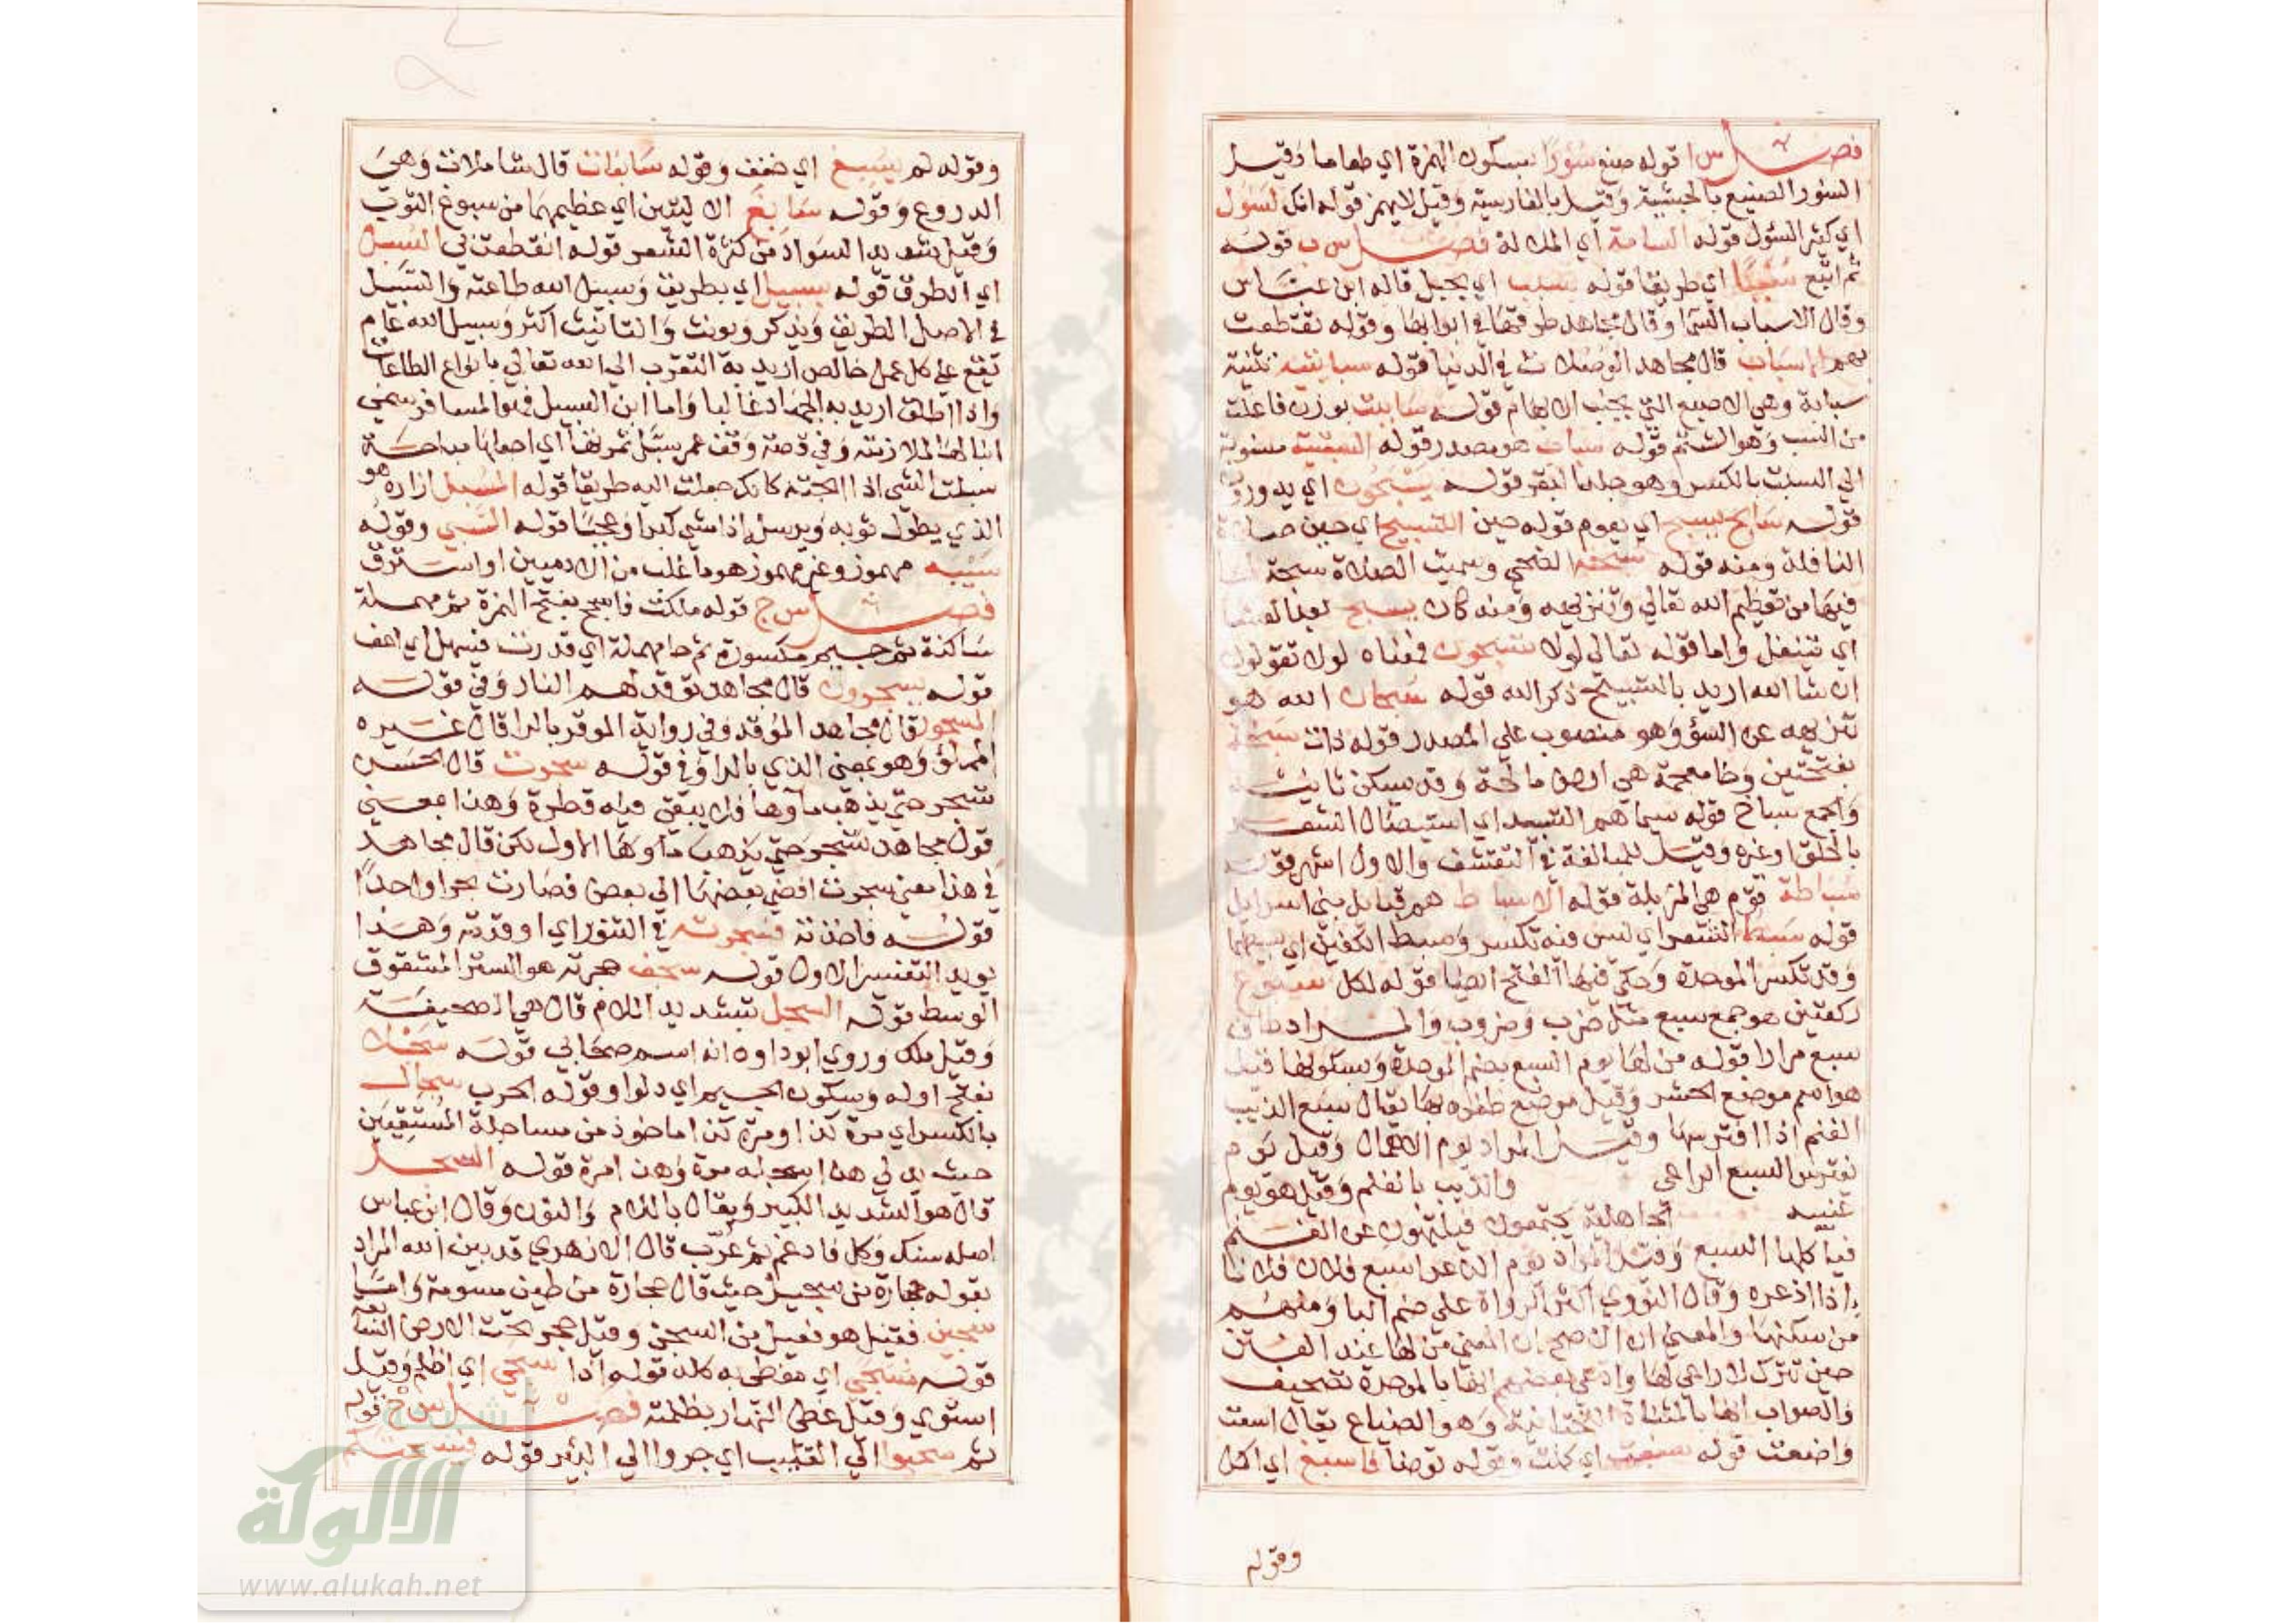 فصل س ا قوله صنع سؤرا بسكون الهمزة اي طعاما وقيل
السؤر الصنيع بالحبشية وقيل بالفارسية وقيل لا يهمز قوله انك لسؤل
اي كثير السؤل قوله السامة اي الملالة فصل س ب قوله
ثم اتبع سببا اي طريقا قوله بسبب اي بحبل قاله ابن عباس
وقال الاسباب السما وقال مجاهد طرقها في ابوابها وقوله تقطعت
بهم الاسباب قال مجاهد الوصلات في الدنيا قوله سبابتيه تثنية
سبابة وهي الاصبع التي بجنب الابهام قوله ساببت بوزن فاعلت
من السب وهو الشتم قوله سباب هو مصدر قوله السبتية منسوبة
الي السبت بالكسر وهو جلد البقر قوله يسبحون اي يدورون
قوله سابح يسبح اي يعوم قوله حين التسبيح اي حين صلاة
النافلة ومنه قوله سبحة الضحي وسميت الصلاة سبحة لما
فيها من تعظيم الله تعالي وتنزيهه ومنه كان يسبح
اي يتنفل واما قوله تعالي لولا تسبحون فمعناه لولا تقولون
ان شا الله اريد بالتسبيح ذكر الله قوله سبحان الله هو
تنزيهه عن السوء وهو منصوب علي المصدر قوله ذات سبخة
بفتحتين وخا معجمة هي ارض مالحة وقد يسكن ثانيه
والجمع سباخ قوله سيماهم التسبيد اي استيصال الشعر
بالحلق او غيره وقيل للمبالغة في التقشف والاول اشهر قوله
سباطة قوم هي المزبلة قوله الاسباط هم قبايل بني اسرايل
قوله سبط الشعر اي ليس فيه تكسر وسبط الكفين اي بسيطهما
وقد تكسر الموحدة وحكي فيها الفتح ايضا قوله لكل سبوع
ركعتين هو جمع سبع مثل ضرب وضروب والمراد طاف
سبع مرارا قوله من لها يوم السبع بضم الموحدة وسكونها قيل
هو اسم موضع الحشر وقيل موضع طفره بها يقال سبع الذيب
الغنم اذا افترسها وقيل المراد يوم الاهمال وقيل يوم
يفترس السبع الراعي والذيب بالغلم وقيل هو يوم
عنيه الجاهلية يجتمعون فيلتهون عن الغنم
فياكلها السبع وقيل المراد يوم الذعر اسبع فلان فلانا
اذا اذعره وقال النووي اكثر الرواة علي ضم البا ومنهم
من سكنها والمعني ان الاصح ان المعني من لها عند الفتن
حين تترك لا راعي لها وادعي بعضهم انها بالموحدة تصحيف
والصواب انها بالمثناة التحتانية وهو الضياع يقال اسعت
واضعت قوله سبغت اي كملت وقوله توضأ فاسبغ اي اكمل
وقوله
وقوله لم يسبغ اي خفف وقوله سابغات قال شاملات وهي
الدروع وقوله سابغ الاليتين اي عظيمهما من سبوغ الثوب
وقيل شديد السواد من كثرة الشعر قوله انقطعت بي السبل
اي الطرق قوله بسبيل اي بطريق وسبيل الله طاعته والسبيل
في الاصل الطريق ويذكر ويونث والتانيث اكثر وسبيل الله عام
يقع علي كل عمل خالص اريد به التقرب الي الله تعالي بانواع الطاعات
واذا اطلق اريد به الجهاد غالبا واما ابن السبيل فهو المسافر سمي
ابنا لها لملازمته وفي قصة وقف عمر سبل ثمرتها اي اجعلها مباحة
سبلت الشي اذا ابحته كانك جعلت اليه طريقا قوله المسبل ازاره هو
الذي يطول ثوبه ويرسله اذا مشي كبرا وعجبا قوله السبي وقوله
سبيه مهموز وغير مهموز هو ما غلب من الادميين او استرق
فصل س ج قوله ملكت فاسجح بفتح الهمزة ثم مهملة
ساكنة ثم جيم مكسورة ثم حا مهملة اي قدرت فسهل اي اعف
قوله يسجرون قال مجاهد توقد لهم النار وفي قوله
المسجور قال مجاهد الموقد وفي رواية الموقر بالرا قال غيره
المملؤ وهو بمعني الذي بالرا وفي قوله سجرت قال الحسن
تسجر حتي يذهب ماؤها فلا يبقي فيه قطرة وهذا بمعني
قول مجاهد تسجر حتي يذهب ماؤها الاول لكن قال مجاهد
في هذا معني سجرت افضي بعضها الي بعض فصارت بحرا واحدا
قوله فاخذته فسجرته في التنور اي اوقدته وهذا
يويد التفسير الاول قوله سجف حجرته هو الستر المشقوق
الوسط قوله السجل بتشديد اللام قال هي الصحيفة
وقيل ملك وروي ابو داود انه اسم صحابي قوله سجلا
بفتح اوله وسكون الجيم اي دلوا وقوله الحرب سجال
بالكسر اي مرة كذا ومرة كذا ماخوذ من مساجلة المستقيين
حيث يدلي هذا سجله مرة وهذا مرة قوله السجيل
قال هو الشديد الكبير ويقال باللام والنون وقال ابن عباس
اصله سنك وكل فادغم ثم عرب قال الازهري قد بين الله المراد
بقوله حجارة من سجيل حيث قال حجارة من طين مسومة واما
سجين فقيل هو فعيل من السجن وقيل حجر تحت الارض السابعة
قوله مسجي اي مغطي به كله قوله اذا سجي اي اظلم وقيل
استوي وقيل غطي النهار بظلمته فصل س ح قوله
ثم سحبوا الي القليب اي جروا الي البئر قوله
شبكة
الألوكة
www.alukah.net